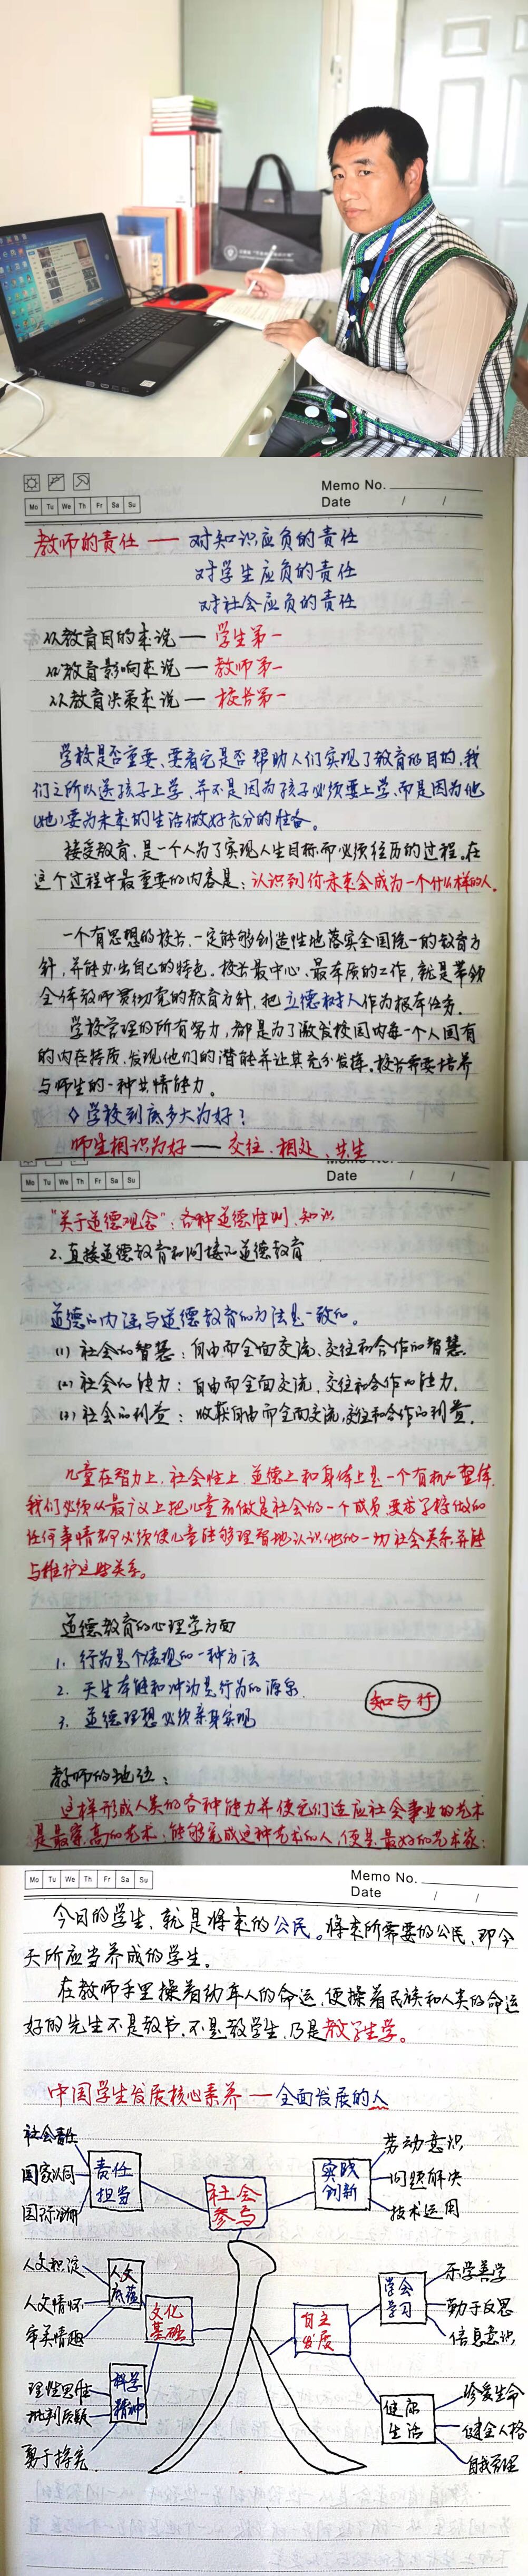 Memo No.
Date / /
Mo Tu We Th Fr Sa Su
教师的责任 — 对知识应负的责任
对学生应负的责任
对社会应负的责任
从教育目的来说 — 学生第一
从教育影响来说 — 教师第一
从教育决策来说 — 校长第一
学校是否重要、要看它是否帮助人们实现了教育的目的,我
们之所以送孩子上学、并不是因为孩子必须要上学、而是因为他
(她)要为未来的生活做好充分的准备。
接受教育,是一个人为了实现人生目标而必须经历的过程。在
这个过程中最重要的内容是:认识到你未来会成为一个什么样的人。
一个有思想的校长,一定能够创造性地落实全国统一的教育方
针,并能办出自己的特色。校长最中心、最本质的工作,就是带领
全体教师贯彻党的教育方针,把立德树人作为根本任务。
学校管理的所有努力,都是为了激发校园内每一个人固有
的内在特质,发现他们的潜能并让其充分发挥。校长需要培养
与师生的一种共情能力。
◇学校到底多大为好?
师生相识为好 — 交往、相处、共生
Memo No.
Date / /
Mo Tu We Th Fr Sa Su
"关于道德观念":各种道德准则、知识
2.直接道德教育和间接的道德教育
道德的内涵与道德教育的方法是一致的。
(1)社会的智慧:自由而全面交流、交往和合作的智慧.
(2)社会的能力:自由而全面交流,交往和合作的能力.
(3)社会的利益:收获自由而全面交流,交往和合作的利益.
儿童在智力上,社会性上,道德上和身体上是一个有机的整体.
我们必须从最广义上把儿童看做是社会的一个成员,要求学校做的
任何事情都必须使儿童能够理智地认识他的一切社会关系,并能
与维护这些关系。
道德教育的心理学方面
1. 行为是个体现的一种方法
2. 天生本能和冲动是行为的源泉.
3. 道德理想必须亲身实现
知与行
教师的地位:
这样形成人类的各种能力并使它们适应社会事业的艺术
是最崇高的艺术;能够完成这种艺术的人,便是最好的艺术家;
Mo Tu We Th Fr Sa Su
Memo No.
Date / /
今日的学生,就是将来的公民。将来所需要的公民,即今
天所应当养成的学生。
在教师手里操着幼年人的命运,便操着民族和人类的命运
好的先生不是教书,不是教学生,乃是教学生学。
中国学生发展核心素养 — 全面发展的人
社会责任
国家认同
国际理解
责任
担当
社会
参与
实践
创新
劳动意识
问题解决
技术运用
人文积淀
人文情怀
审美情趣
人文
底蕴
文化
基础
理性思维
批判质疑
勇于探究
科学
精神
自主
发展
学会
学习
乐学善学
勤于反思
信息意识
健康
生活
珍爱生命
健全人格
自我管理